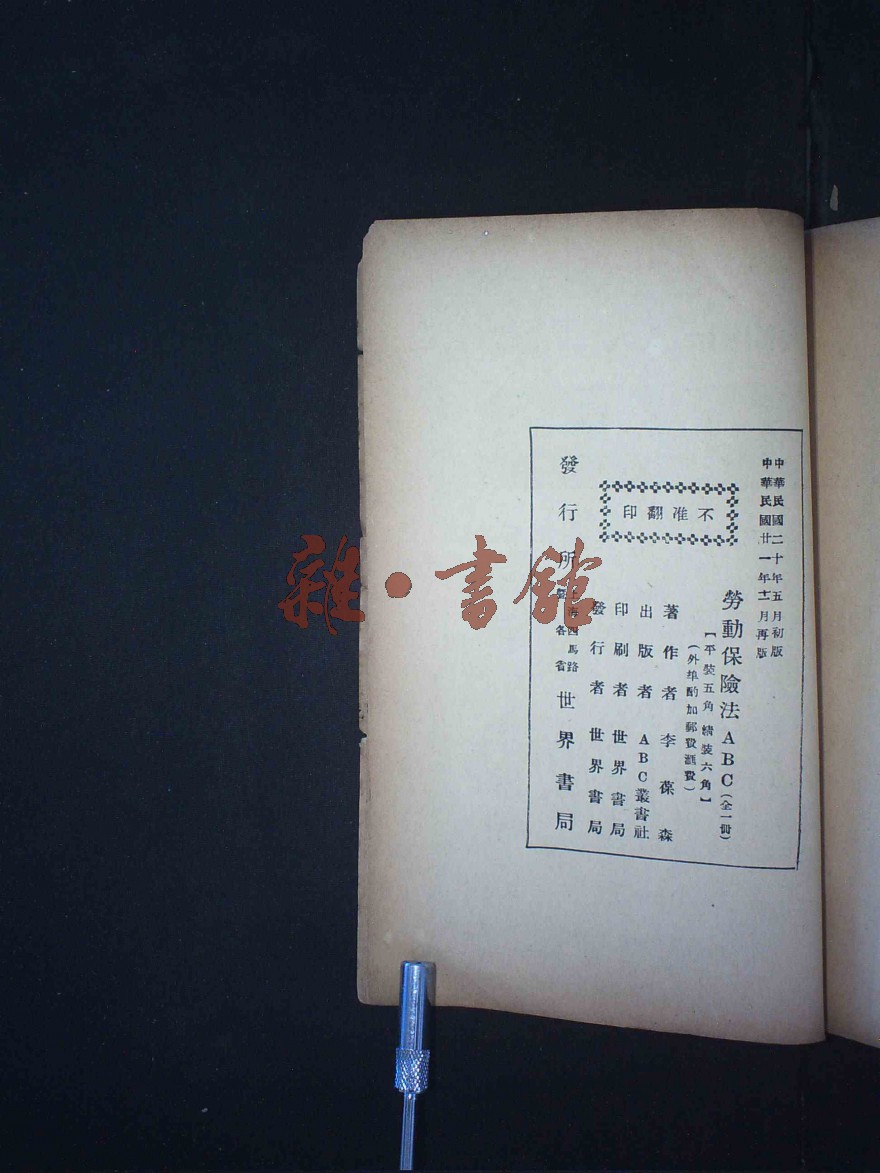 中華民國二十年五月初版
中華民國廿一年十二月再版
勞動保險法ABC(全一冊)
【平裝五角 精裝六角】
(外埠酌加郵費滙費)
著作者 李葆森
出版者 ABC叢書社
印刷者 世界書局
發行者 世界書局
不准翻印
發行所 上海四馬路 暨各省 世界書局
雜·書館